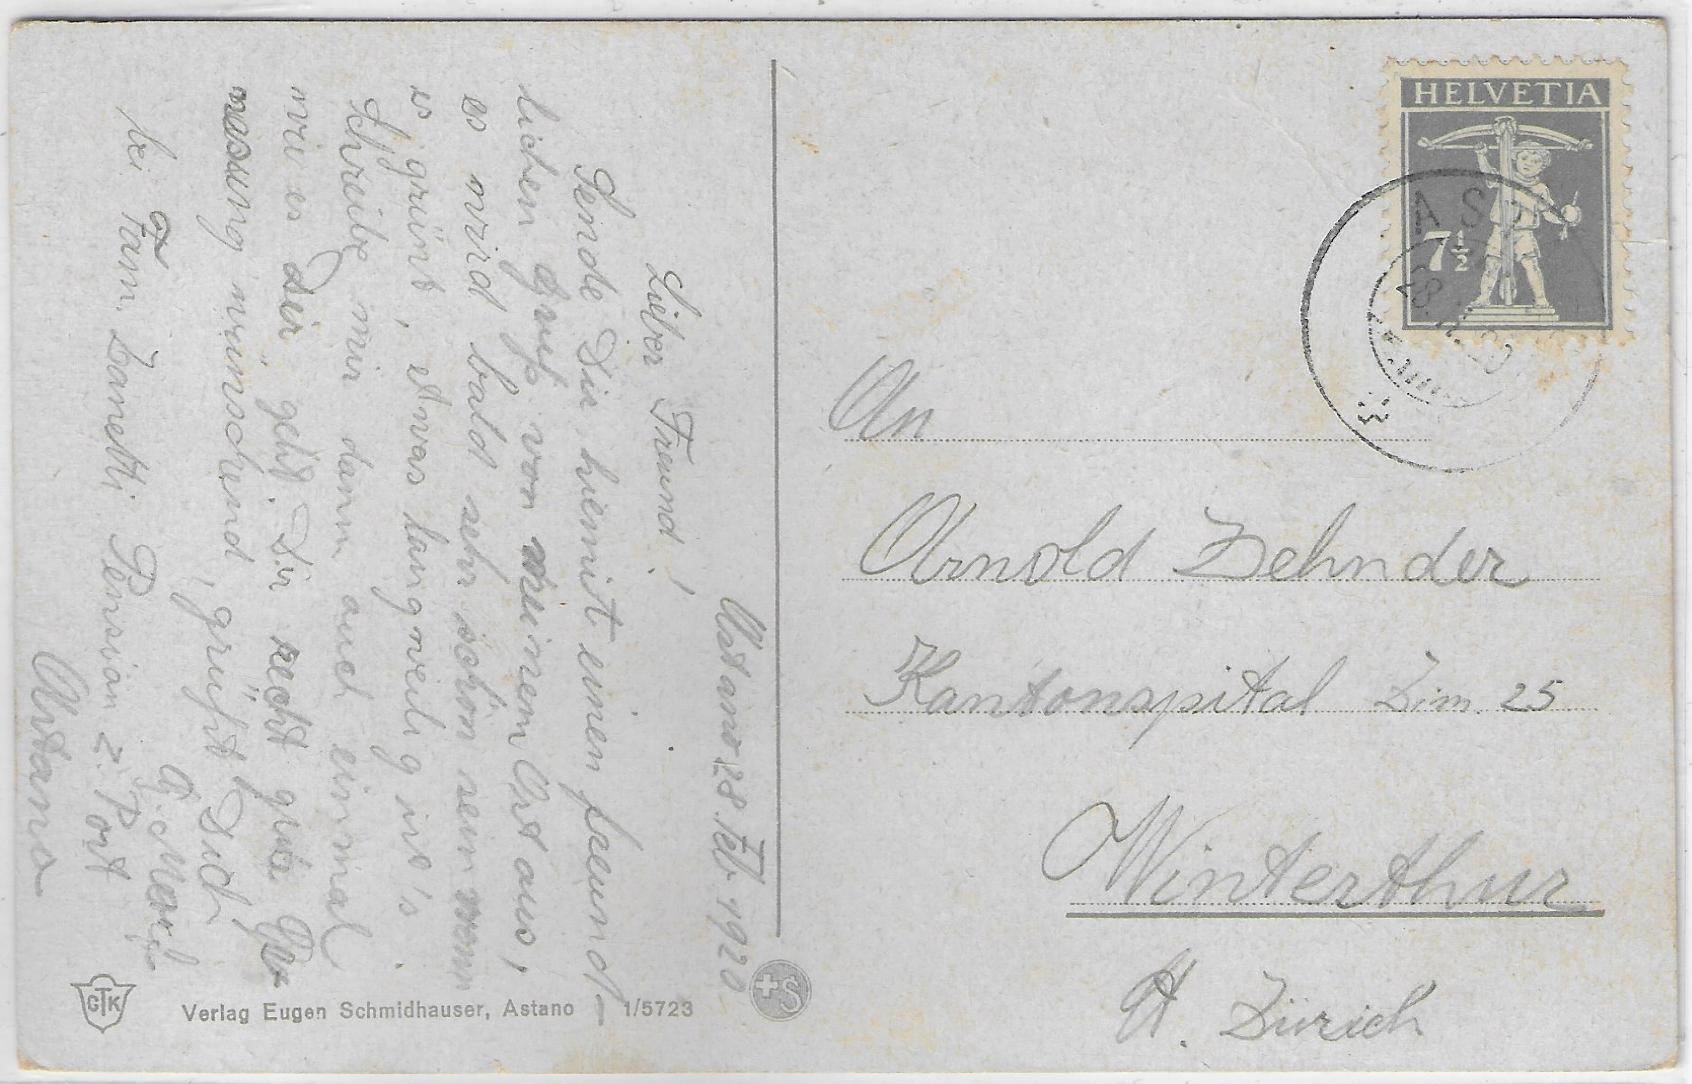 Astano 28 Feb 1920
Lieber Freund!
Sende Dir hiemit einen freund-
lichen Gruß von meinem Ort aus,
es wird bald sehr schön sein wenn
es grünt, etwas langweilig ist's.
Schreibe mir dann auch einmal
wie es Dir geht. Dir recht gute Ge-
nessung wünschend, grüßt Dich
G.
bei Fam. Zanetti Pension z. Post
Astano
Verlag Eugen Schmidhauser, Astano 1/5723
CTK
+S
HELVETIA
7½
AS
28. II. 20
An
Arnold Zehnder
Kantonspital Zim. 25
Winterthur
Kt. Zürich